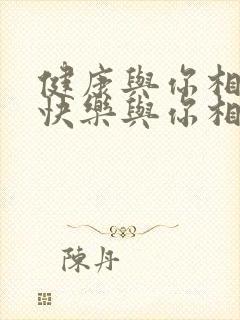 健康與你相
快樂與你相
陳丹